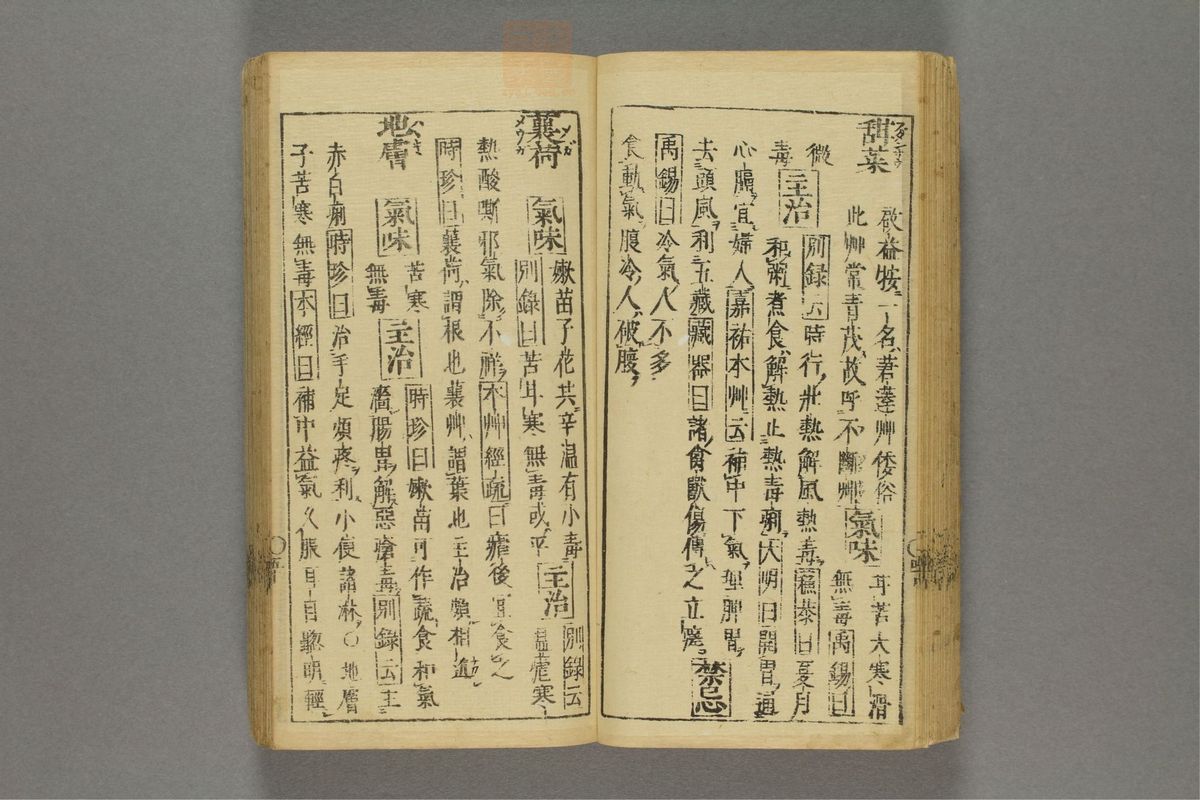 甜菜
啟益按一名莙薘艸倭俗
此艸常青茂故呼不斷艸 氣味 甘苦大寒滑
無毒禹錫曰
微
毒 主治 別錄云時行壯熱解風熱毒蘇恭曰夏月
和粥煮食解熱止熱毒痢大明曰開胃通
心膈宜婦人嘉祐本艸云補中下氣理脾胃
去頭風利五藏藏器曰諸禽獸傷傅之立愈 禁忌
禹錫曰冷氣人不多
食動氣腹冷人破腹
蘘荷 氣味 嫩苗子花共辛温有小毒
別錄曰苦甘寒無毒或平 主治 別錄云
温瘧寒
熱酸嘶邪氣除不祥本艸經疏曰瘧後宜食之
時珍曰蘘荷謂根也蘘艸謂葉也主治頗相近
地膚 氣味 苦寒
無毒 主治 時珍曰嫩苗可作蔬食和氣
濇腸胃解惡瘡毒別錄云主
赤白痢時珍曰治手足煩疼利小便諸淋〇地膚
子苦寒無毒本經曰補中益氣久服耳目聰明輕